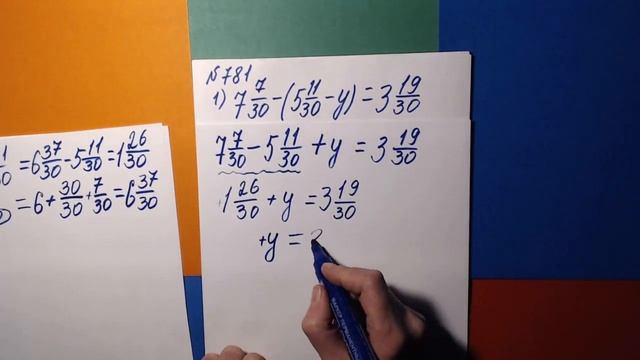 1/30 = 6 37/30 - 5 11/30 = 1 26/30
= 6 + 30/30 + 7/30 = 6 37/30
№ 781
1) 7 7/30 - (5 11/30 - y) = 3 19/30
7 7/30 - 5 11/30 + y = 3 19/30
1 26/30 + y = 3 19/30
+y =